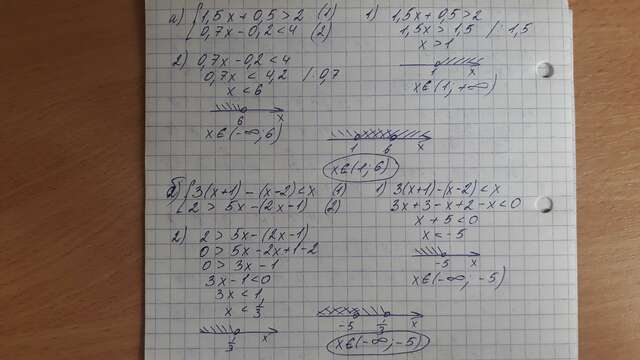 а) { 1,5x + 0,5 > 2 (1)
0,7x - 0,2 < 4 (2)
1) 1,5x + 0,5 > 2
1,5x > 1,5 / : 1,5
x > 1
1 x
x ∈ (1; +∞)
2) 0,7x - 0,2 < 4
0,7x < 4,2 / 0,7
x < 6
6 x
x ∈ (-∞; 6)
1 6 x
x ∈ (1; 6)
б) { 3(x+1) - (x-2) < x (1)
2 > 5x - (2x-1) (2)
1) 3(x+1) - (x-2) < x
3x + 3 - x + 2 - x < 0
x + 5 < 0
x < -5
-5 x
x ∈ (-∞; -5)
2) 2 > 5x - (2x-1)
0 > 5x - 2x + 1 - 2
0 > 3x - 1
3x - 1 < 0
3x < 1
x < 1/3
1/3 x
-5 1/3 x
x ∈ (-∞; -5)